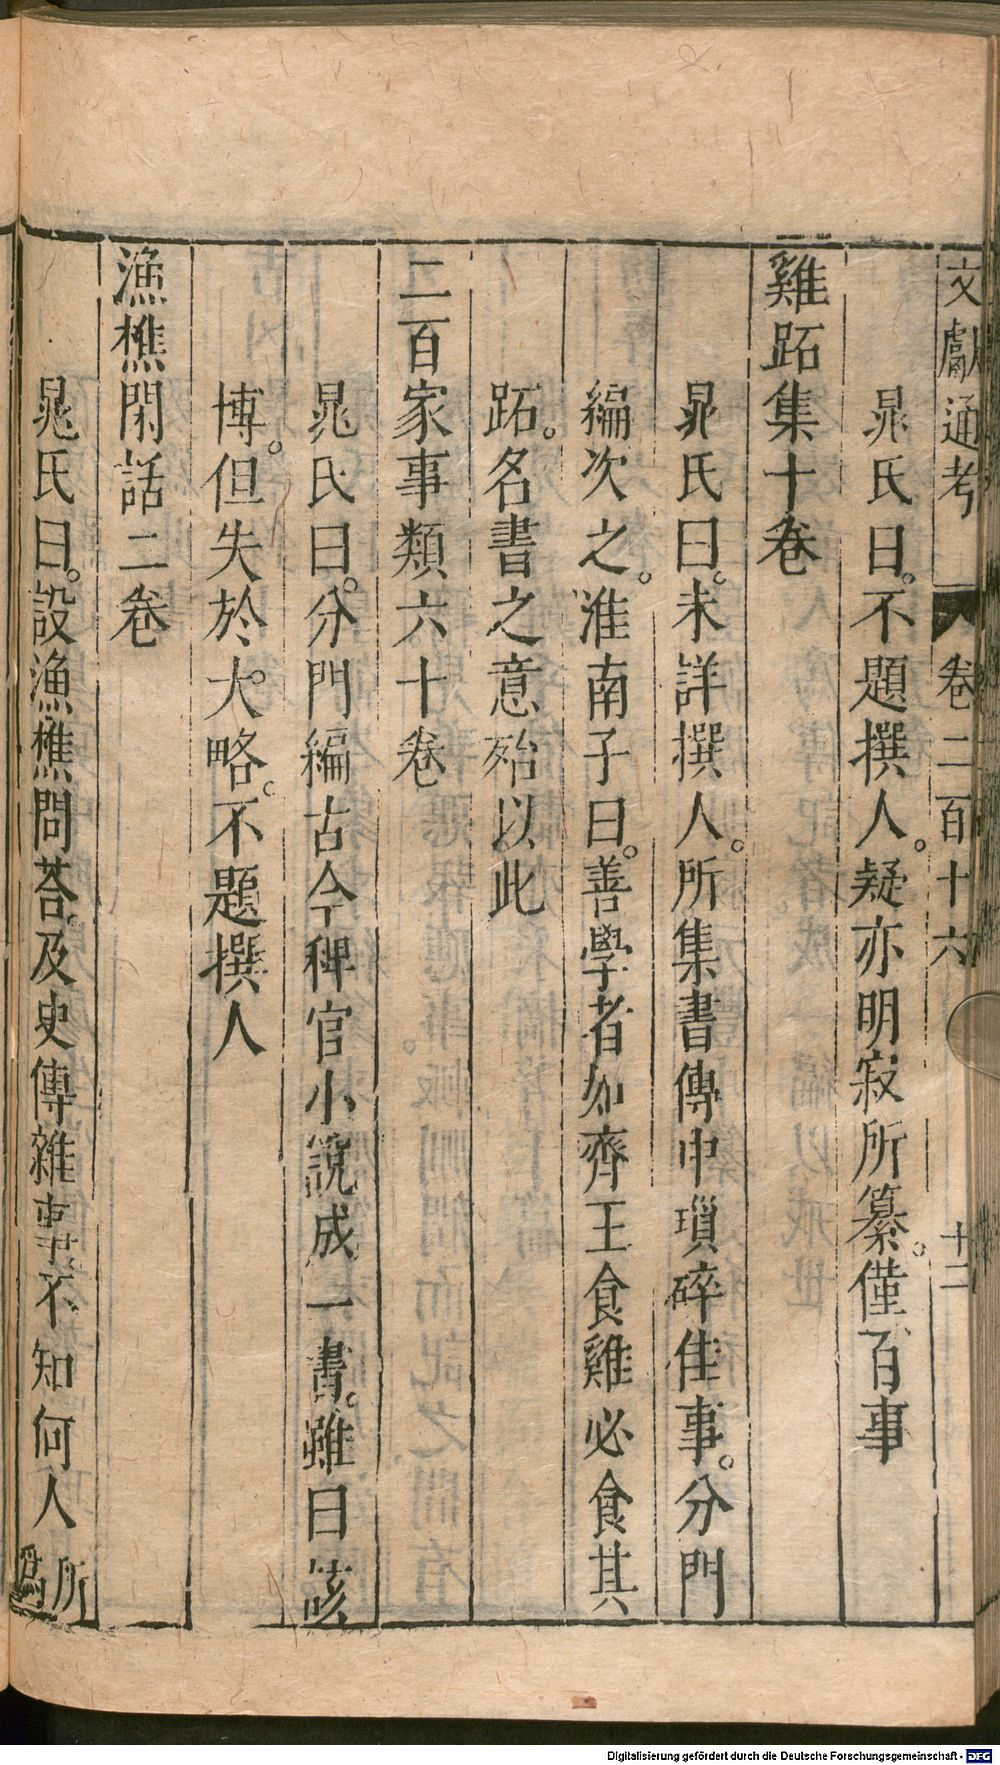 文獻通考 卷二百十六 十二
晁氏曰。不題撰人。疑亦明寂所纂。僅百事
雞跖集十卷
晁氏曰。未詳撰人。所集書傳中瑣碎佳事。分門
編次之。淮南子曰。善學者如齊王食雞必食其
跖。名書之意殆以此
二百家事類六十卷
晁氏曰。分門編古今稗官小說成一書。雖曰該
博。但失於大略。不題撰人
漁樵閑話二卷
晁氏曰。設漁樵問荅。及史傳雜事。不知何人所爲
Digitalisierung gefördert durch die Deutsche Forschungsgemeinschaft - DFG